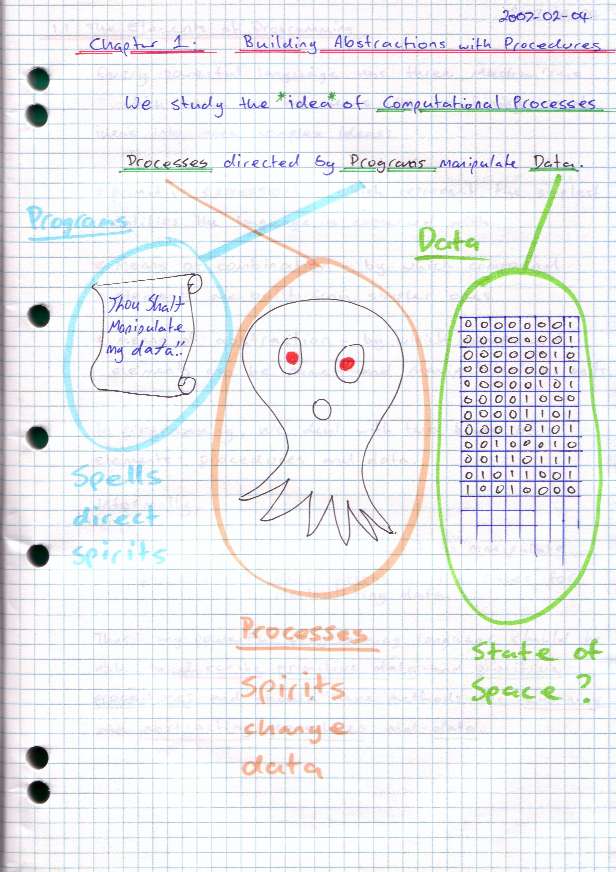 2007-02-04
Chapter 1: Building Abstractions with Procedures
We study the *idea* of Computational Processes
Processes directed by Programs manipulate Data.
Programs
Data
Thou Shalt
Manipulate
my data!!
0 0 0 0 0 0 0 1
0 0 0 0 0 0 0 1
0 0 0 0 0 0 1 0
0 0 0 0 0 0 1 1
0 0 0 0 0 1 0 1
0 0 0 0 1 0 0 0
0 0 0 0 1 1 0 1
0 0 0 1 0 1 0 1
0 0 1 0 0 0 1 0
0 0 1 1 0 1 1 1
0 1 0 1 1 0 0 1
1 0 0 1 0 0 0 0
Spells
direct
spirits
Processes
Spirits
change
data
State of
Space?